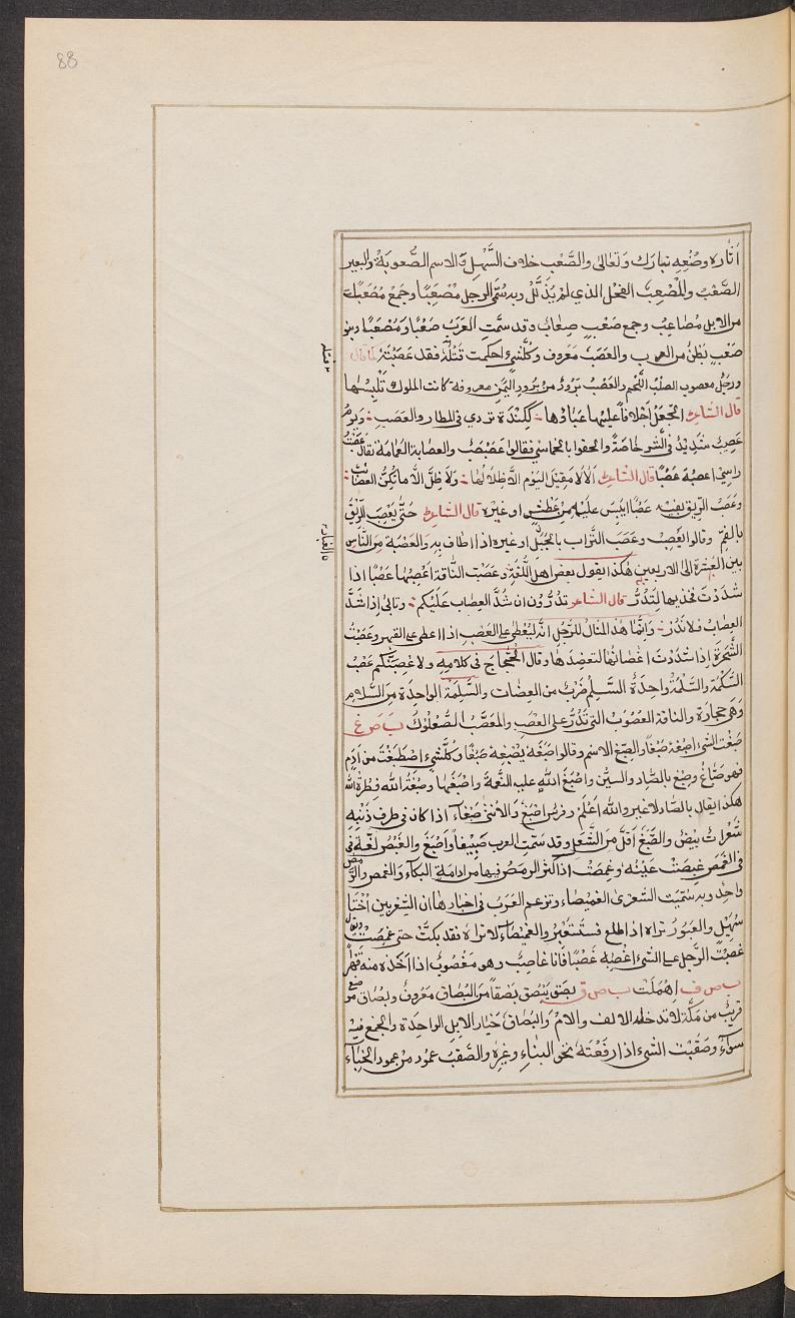 88
آثاره وصُنْعِه تبارك وَتعالى والصَّعْب خلاف السَّهْل والاسم الصُّعوبَة والبعير
الصَّعْبُ والمُصْعِبُ الفحْل الذي لمْ يُذَلَّلْ وبه سُمّى الرجل مُصْعَبًا وجَمْعُ مُصْعَب
من الابل مَصَاعِبُ وجمع صَعْبٍ صِعَابٌ وقد سَمَّتِ العَرَب صَعْبًا ومُصْعَبًا وبنو
صَعْبٍ بَطْنٌ من العرب والعَصَبُ مَعروف وكلُّ شيءٍ احكمت فَتْلَهُ فقد عَصَبْتَهُ
ورَجُل معصوب الصلبُ اللَّحم والعَصْبُ بَرُودٌ من بُرودِ اليَمَن معروفة كانت الملوك تَلْبِسُها
قال الشاعر اتجعَلُ أَحْلافاً عليها عِبَادُها ككِنْدَة تردي في المطارف والعَصبِ ويوم
عَصِيبٌ شَدِيدٌ في الشّر خاصّة والحقوا بالخماسي فقالوا عَصَبْصَبٌ والعصابة العِمَامَة يقال عَصَبْتُ
راسي اعصبه عَصْبًا قال الشاعر أَلا لا مَقِيْلَ اليَوْم الا ظلالُها ولا ظِلَّ الا ما تكنُّ العصائبُ
وعَصَبُ الرِّيق بفيه عَصْبًا ايَبِسَ علَيْه مِن عَطَشٍ او غيره قال الشاعر حَتَّى يَعْصِبَ الرِّيْقُ
بالفَمِّ وقالوا يَعْصِب وعَصَب التُّراب بالجَبَلِ او غيره اذا اطاف به والعُصْبة مِن النَّاس
بين العَشرة الى الاربعين هٰكذا يقول بعض اهل اللُّغَةِ وعَصَبْت النَّاقة اَعْصِبُها عَصْبًا اذا
شدَدْتَ فخذيها لِتَدُرَّ قال الشاعر تدُرُّون ان شُدَّ العِصاب عَلَيْكم وتابى اذا شُدَّ
العِصابُ فلا تَدُرّ وانّما هذا المثال للرَّجُل انَّه ليُعْطِي على العَصْبِ اذا اعطى على القهر وعَصَبْتُ
الشَّجَرَة اذا شددْتَ اغصانها لتعضدها وقال الحَجَّاج في كلامِه ولاعْصِبَنَّكم عَصْبَ
السَّلَمَة والسَّلَمَةُ واحِدَةُ السَّلَمِ ضَرْبٌ من العِضات والسَّلِمَةُ الواحِدَة من السِّلامِ
وَهِيَ حِجَارَة والناقة العَصُوبُ التي تَدُرُّ على العَصْبِ والمعَصَّبُ الصُّعْلُوكُ ب ص غ
صَبَغت الشيء اصبُغهُ صَبْغًا والصِّبْغ الاسم وقالوا صَبَغَه يَصْبِغه صَبْغًا وكلُّ شيءٍ اصْطَبَغْتَ من أُدْمٍ
فهو صِبَاغٌ وصِبْغ بالصَّاد والسين واصْبَغَ اللهِ عليه النِّعمةَ واضْبَغَها وصِبْغَةُ الله فِطْرَةُ الله
هكذا يقال بالصَّاد لا غير والله اَعْلَم وفرسٌ اصْبَغُ والانثى صَبْغآء اذا كان في طرف ذَنَبِه
شَعْراتٌ بيضٌ والصَّبَغُ اقلّ من الشَّعَلِ وقد سَمَّتِ العرب صَبِيغًا وَأَصْبَغَ والغَبَصُ لُغَة في
في الغَمَصِ غبِصَتْ عَيْنُه وغمِصَتْ اذا كثر الرمَصُ فيها من ادامة البكآءِ والغمص والرَّمَص
واحد وبه سُمّيَت الشِعرى الغُمَيصاء وتزعم العَرَب في اخبارها ان الشِعْريين أُخْتَا
سُهَيْل والعَبُورُ تراه اذا طلع فتستَعْبِر والغُمَيصآء لا تراه فقد بكَتْ حتى غمِصَتْ ويقال
غصَبْتُ الرَّجل على الشيءِ اغْصِبُه غَصْبًا فانا غاصِبٌ وهو مَغْصُوبٌ اذا اَخَذْه منه قَهْرًا
ب ص ف اهْمِلَت ب ص ق بَصَق يَبْصُق بَصْقًا من البُصَاق مَعروفٌ وبُصَاق موضع
قريبٌ من مكَّة لا تدخله الالف واللامُ والبُصَاق خيار الابل الواحِدة والجمْع فيه
سوآءٌ وصَقَبْت الشيءَ اذا رفَعْتَه نحو البِنآءِ وغيره والصَّقْبُ عمُود من عمود الخِبَاءِ